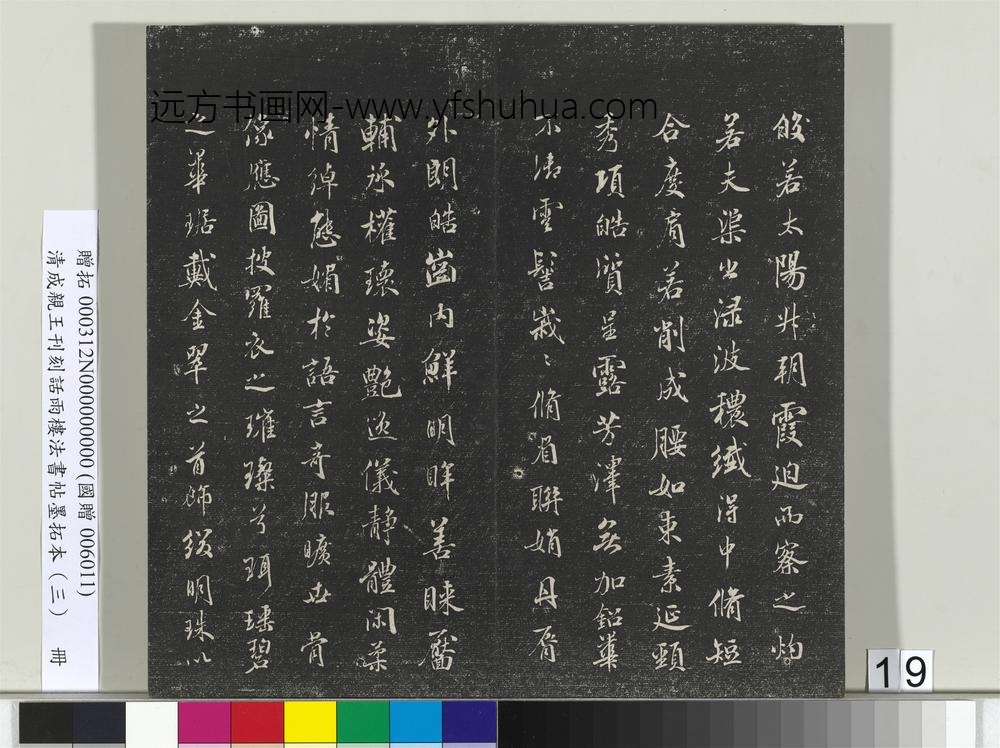 远方书画网-www.yfshuhua.com
皎若太陽升朝霞迫而察之灼
若夫渠出淥波穠纖得中脩短
合度肩若削成腰如束素延頸
秀項皓質呈露芳澤無加鉛華
不御雲髻峩〻脩眉聯娟丹脣
外朗皓齒內鮮明眸善睞靨
輔承權瓌姿艷逸儀静體閑柔
情綽態媚於語言奇服曠世骨
像應圖披羅衣之璀璨兮珥瑤碧
之華琚戴金翠之首飾綴明珠以
贈拓 000312N000000000 (國贈 006011)
清成親王刊刻話雨樓法書帖墨拓本(三) 冊
19